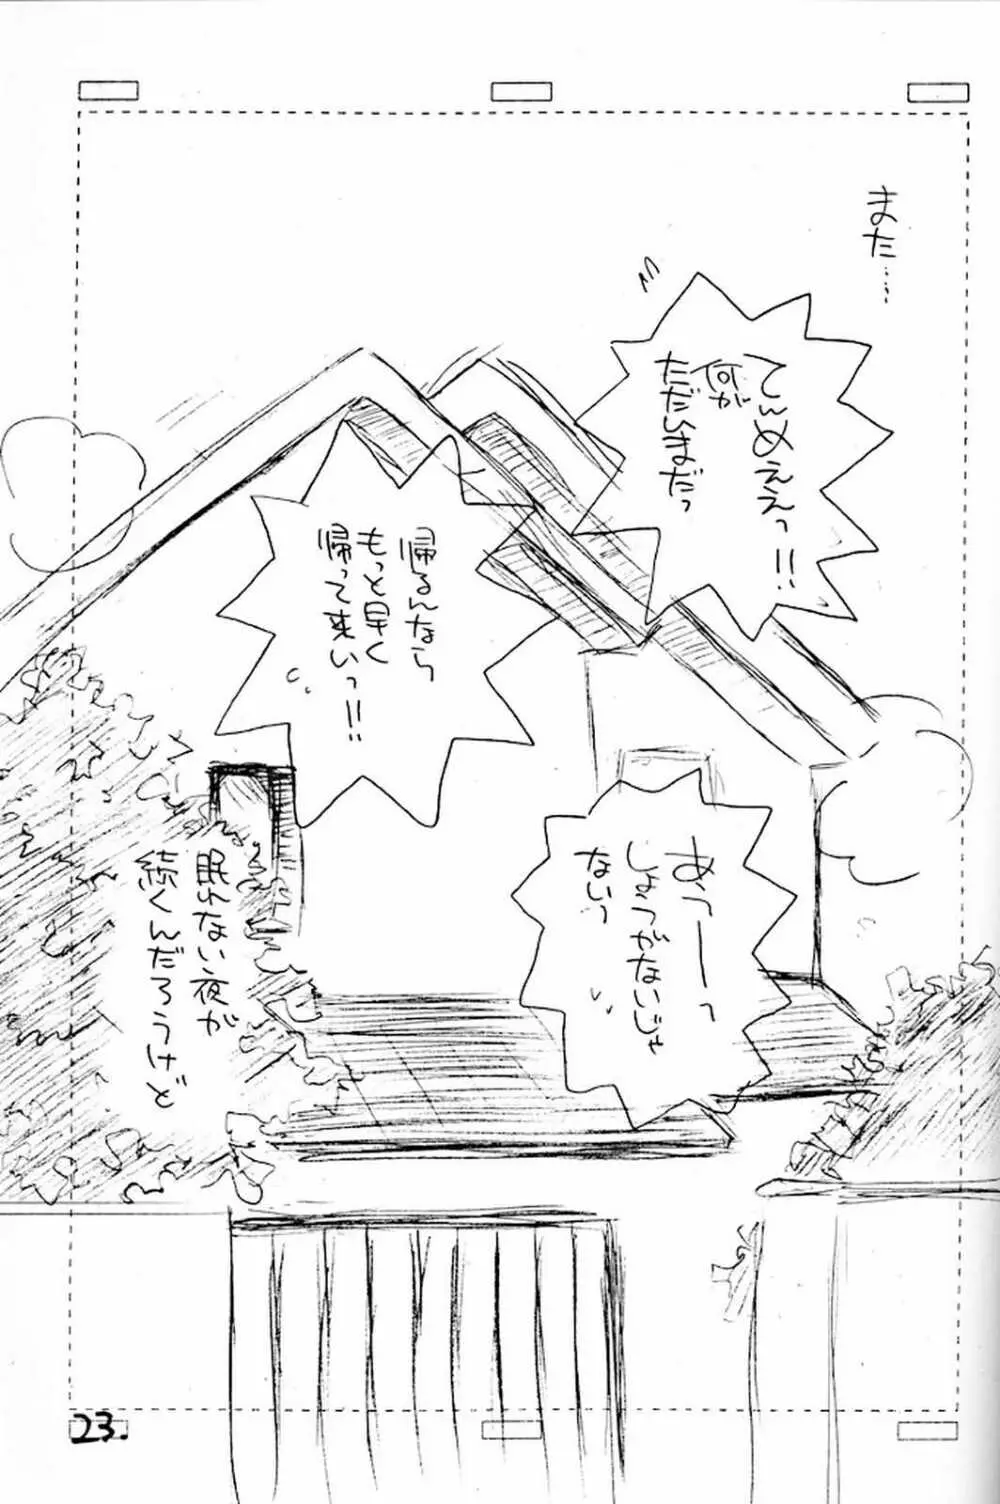 また……
てんめええっ!!
何が
ただいまだっ
帰るんなら
もっと早く
帰って来いっ!!
あうーーっ
しょうがないじゃ
ないっ
眠れない夜が
続くんだろうけど
23.